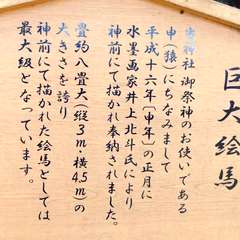 巨大絵馬
当神社御祭神のお使いである
申(猿)にちなみまして
平成十六年(申年)の正月に
水墨画家井上北斗氏により
神前にて描かれ奉納されました。
畳約八畳大(縦3m・横4.5m)の
大きさを誇り
神前にて描かれた絵馬としては
最大級となっています。